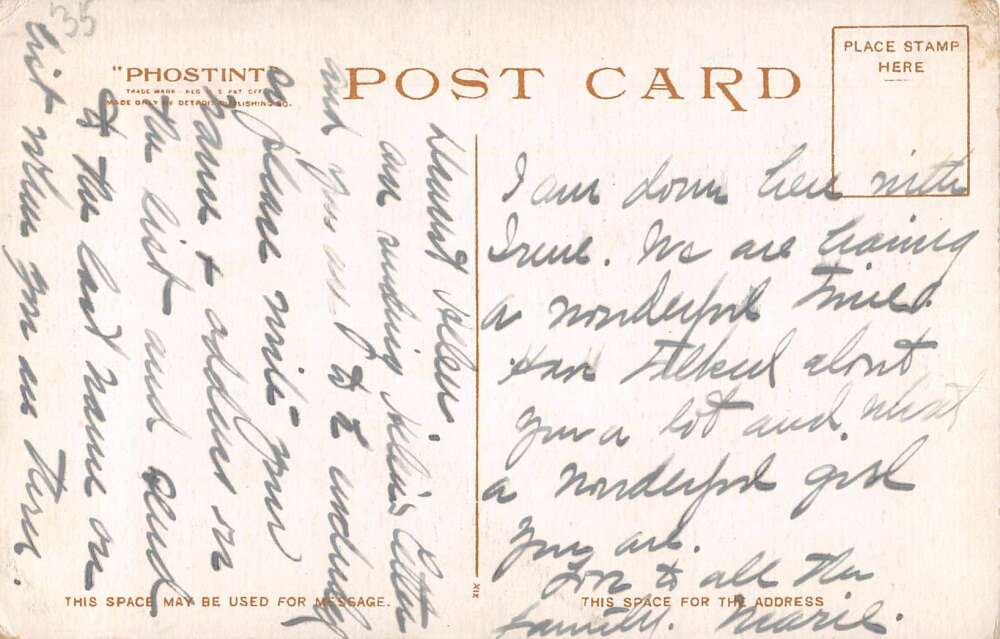 35
"PHOSTINT"
TRADE MARK REG U S PAT OFF
MADE ONLY BY DETROIT PUBLISHING CO.
POST CARD
PLACE STAMP
HERE
Helen.
am sending letter
and you are to
so please write your
name + address on
the list and send
to the last name on
list when you are thru.
I am down here with
Irene. We are having
a wonderful time.
Have talked about
you a lot and what
a wonderful girl
you are.
Love to all the
family. Marie.
XIX
THIS SPACE MAY BE USED FOR MESSAGE.
THIS SPACE FOR THE ADDRESS